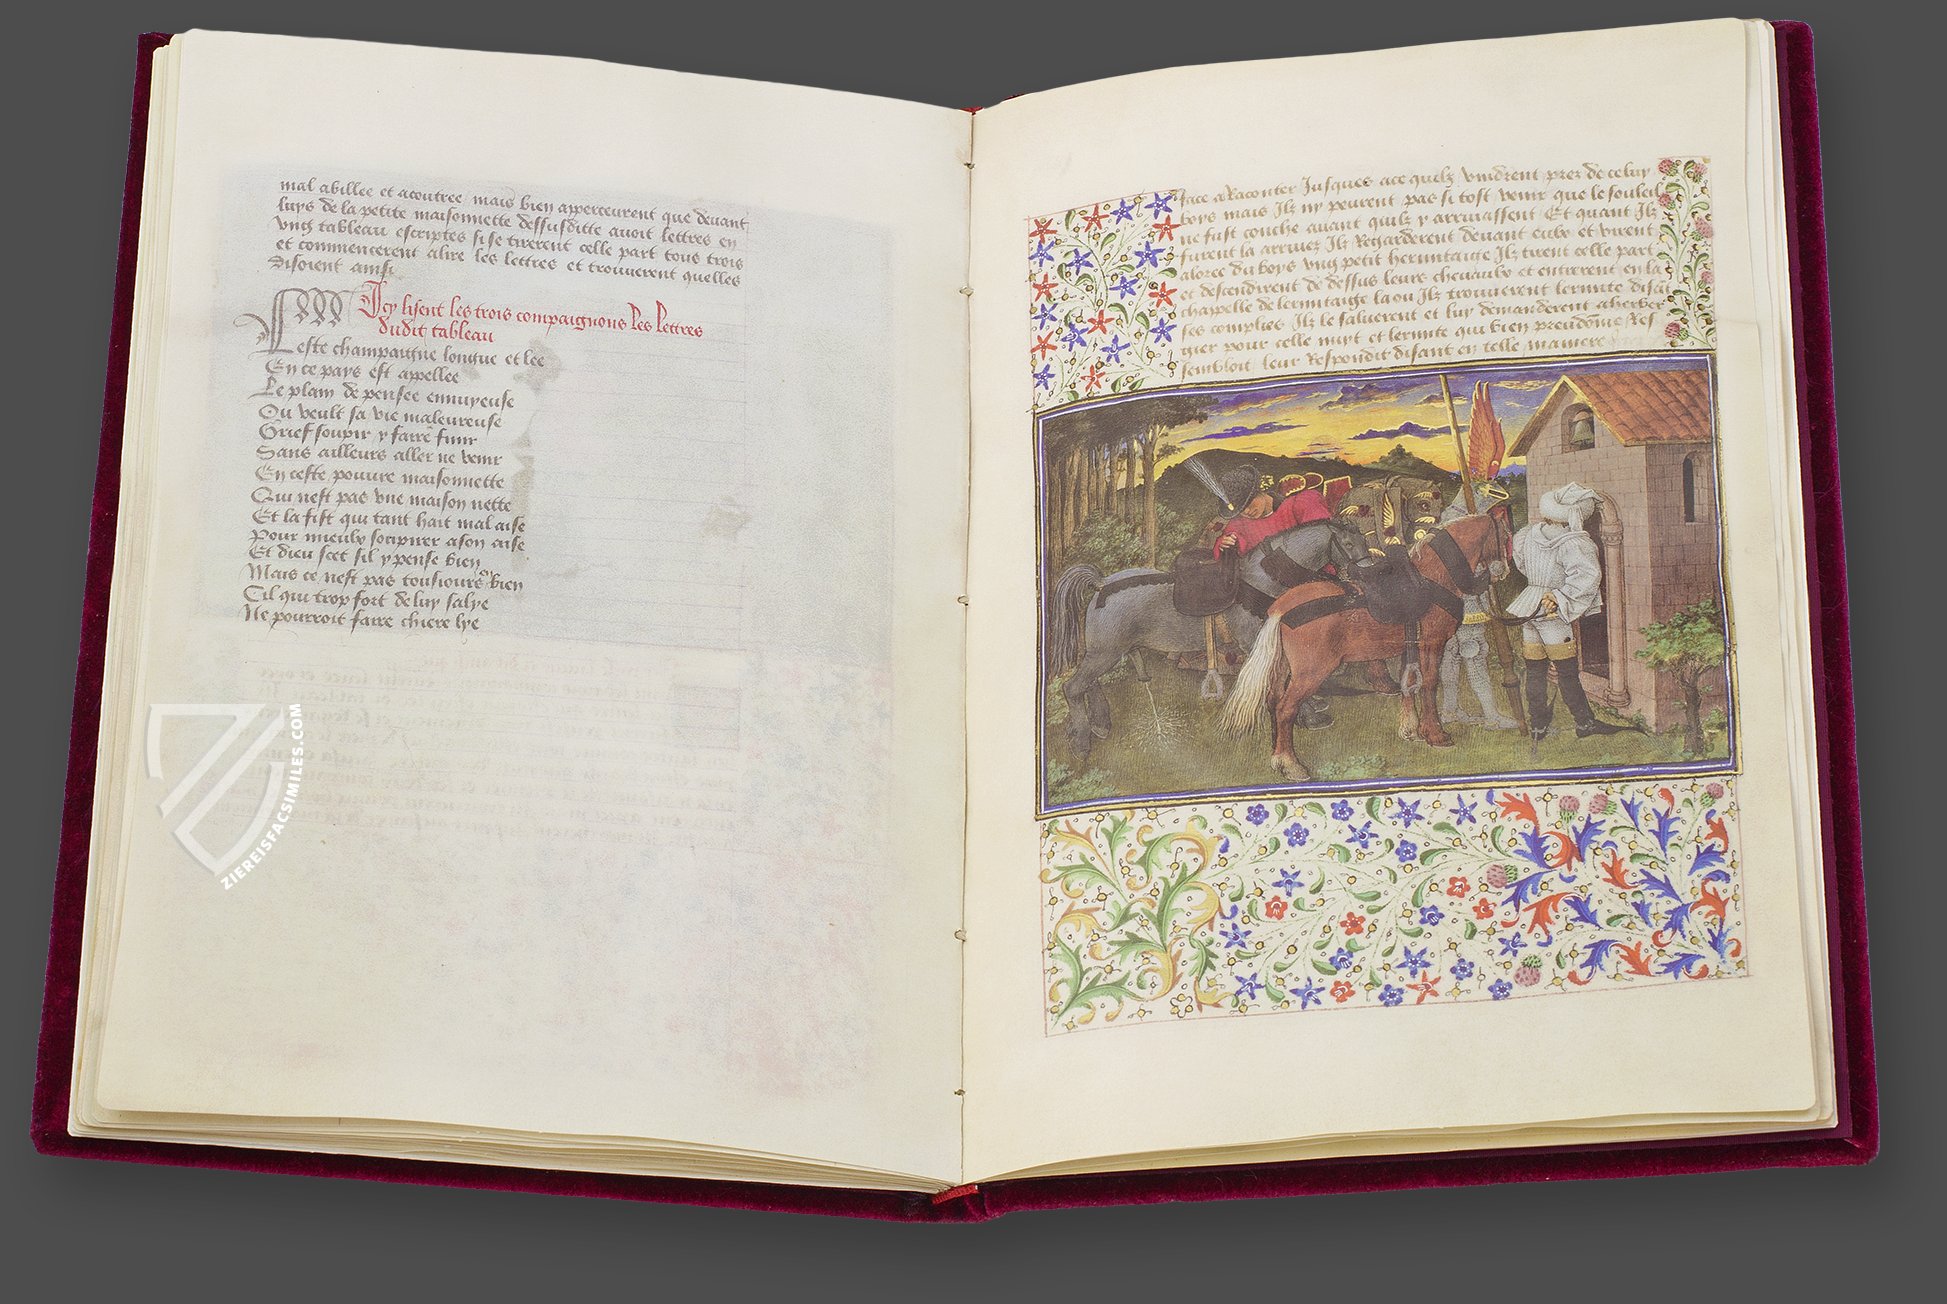 mal abillee et acoutree mais bien apperceurent que devant
luys de la petite maisonnette dessusditte avoit lettres en
ung tableau escriptes si se tirerent celle part tous trois
et commencerent a lire les lettres et trouverent quelles
disoient ainsi
Icy lisent les trois compaignons les lettres
dudit tableau
Ceste champaigne longue et lee
En ce pays est appellee
Le plain de pensee ennuyeuse
Ou veult sa vie maleureuse
Grief soupir y faire finir
Sans ailleurs aller ne venir
En ceste povure maisonnette
Qui nest pas une maison nette
Et la fist qui tant hait mal aise
Pour mieulx soupirer a son aise
Et dieu scet sil y pense bien
Mais ce nest pas tousiours bien
Cil qui trop fort de luy salye
Ne pourroit faire chiere lye
ZIEREISFACSIMILES.COM
face a Raconter Jusques a ce quilz vindrent prez de celuy
boys mais Ilz ny peurent pas si tost venir que le souleil
ne fust couche avant quilz y arrivassent Et quant Ilz
furent la arrivez Ilz Regarderent devant eulx et virent
a loree du boys ung petit hermitaige Ilz tirent celle part
et descendirent de dessus leurs chevaulx et entrerent en la
chappelle de lermitaige la ou Ilz trouverent lermite disant
ses complies Ilz le saluerent et luy demanderent a herber
gier pour celle nuyt et lermite qui bien preudomme Res
sembloit leur Respondit disant en telle maniere